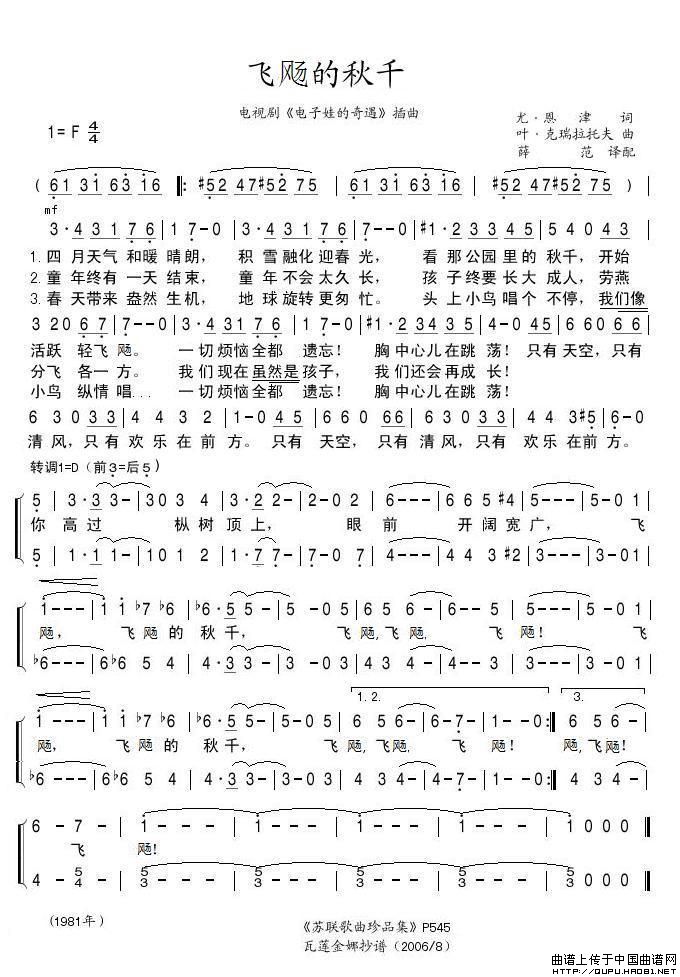 飞飏的秋千
电视剧《电子娃的奇遇》插曲
尤·恩 津 词
1=F 4/4
叶·克瑞拉托夫 曲
薛 范 译配
( 61 31 63 16 ‖: #52 47#52 75 | 61 31 63 16 | #52 47 #52 75 )|
mf
3·4 3 1 7 6 | 1 7-0 | 3·4 3 1 7 6 | 7--0 | #1·2 3 3 4 5 | 5 4 0 4 3 |
1. 四 月天气 和暖 晴朗， 积 雪融化迎春 光， 看 那公园 里的 秋千，开始
2. 童 年终有 一天 结束， 童 年不会太久 长， 孩 子终要 长大 成人，劳燕
3. 春 天带来 盎然 生机， 地 球旋转更匆 忙。 头 上小鸟 唱个 不停，我们像
3 20 6 7 | 7--0 | 3·4 3 1 7 6 | 1 7-0 | #1·2 3 3 5 4 | 4--0 45 | 6 6 0 6 6 |
活跃 轻飞 飏。 一切 烦恼全都 遗忘！ 胸中心儿在跳 荡！只有天空，只有
分飞 各一 方。 我们 现在虽然是 孩子， 我们还会再成 长！
小鸟 纵情 唱... 一切 烦恼全都 遗忘！ 胸中心儿在跳 荡！
6 3 0 3 3 | 4 4 3 2 | 1-0 45 | 6 6 0 66 | 6 3 0 3 3 | 4 4 3#5 | 6--0 |
清 风，只 有 欢 乐 在 前 方。 只有 天空，只 有 清风，只 有 欢乐 在前 方。
转调1=D（前3=后5）
5 | 3·3 3- | 3 0 3 4 3 | 3·2 2- | 2-0 2 | 6--- | 6 6 5 #4 | 5--- | 5-0 5 |
你 高过 枞树 顶上， 眼 前 开阔宽广， 飞
5 | 1·1 1- | 1 0 1 2 1 | 1·7 7- | 7-0 7 | 4--- | 4 4 3 #2 | 3--- | 3-0 1 |
1--- | 1 1 b7 b6 | b6·5 5- | 5 -05 | 6 5 6 5 | 6--6 | 5--- | 5-01 |
飏， 飞飏的秋千， 飞飏,飞飏, 飞飏！ 飞
b6--- | b6 b6 5 4 | 4·3 3- | 3-03 | 4 3 4 3 | 4--4 | 3--- | 3-01 |
1. 2.
3.
1--- | 1 1 b7 b6 | b6·5 5- | 5--0 | 6 5 6- | 6-7- | 1--0 :‖ 6 5 6- |
飏， 飞飏的秋千， 飞飏,飞飏, 飞飏！ 飞飏,飞飏！
b6--- | b6 b6 5 4 | 4·3 3- | 3--0 | 4 3 4- | 4-7- | 1--0 :‖ 4 3 4- |
6 - 7 - | 1--- | ---- | ---- | ---- | 1 0 0 0 ‖
飞 飏！
4 - 5/4 - | 5/3--- | ---- | ---- | ---- | 5/3 0 0 0 ‖
(1981年)
《苏联歌曲珍品集》P545
瓦莲金娜抄谱（2006/8）
曲谱上传于中国曲谱网
HTTP://QUPU.HAO81.NET